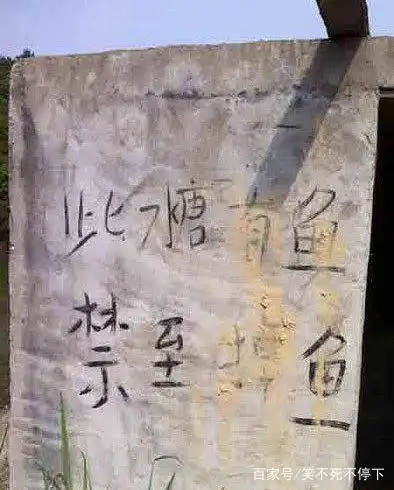 此溏有鱼
禁至鱼
百家号/笑不死不停下